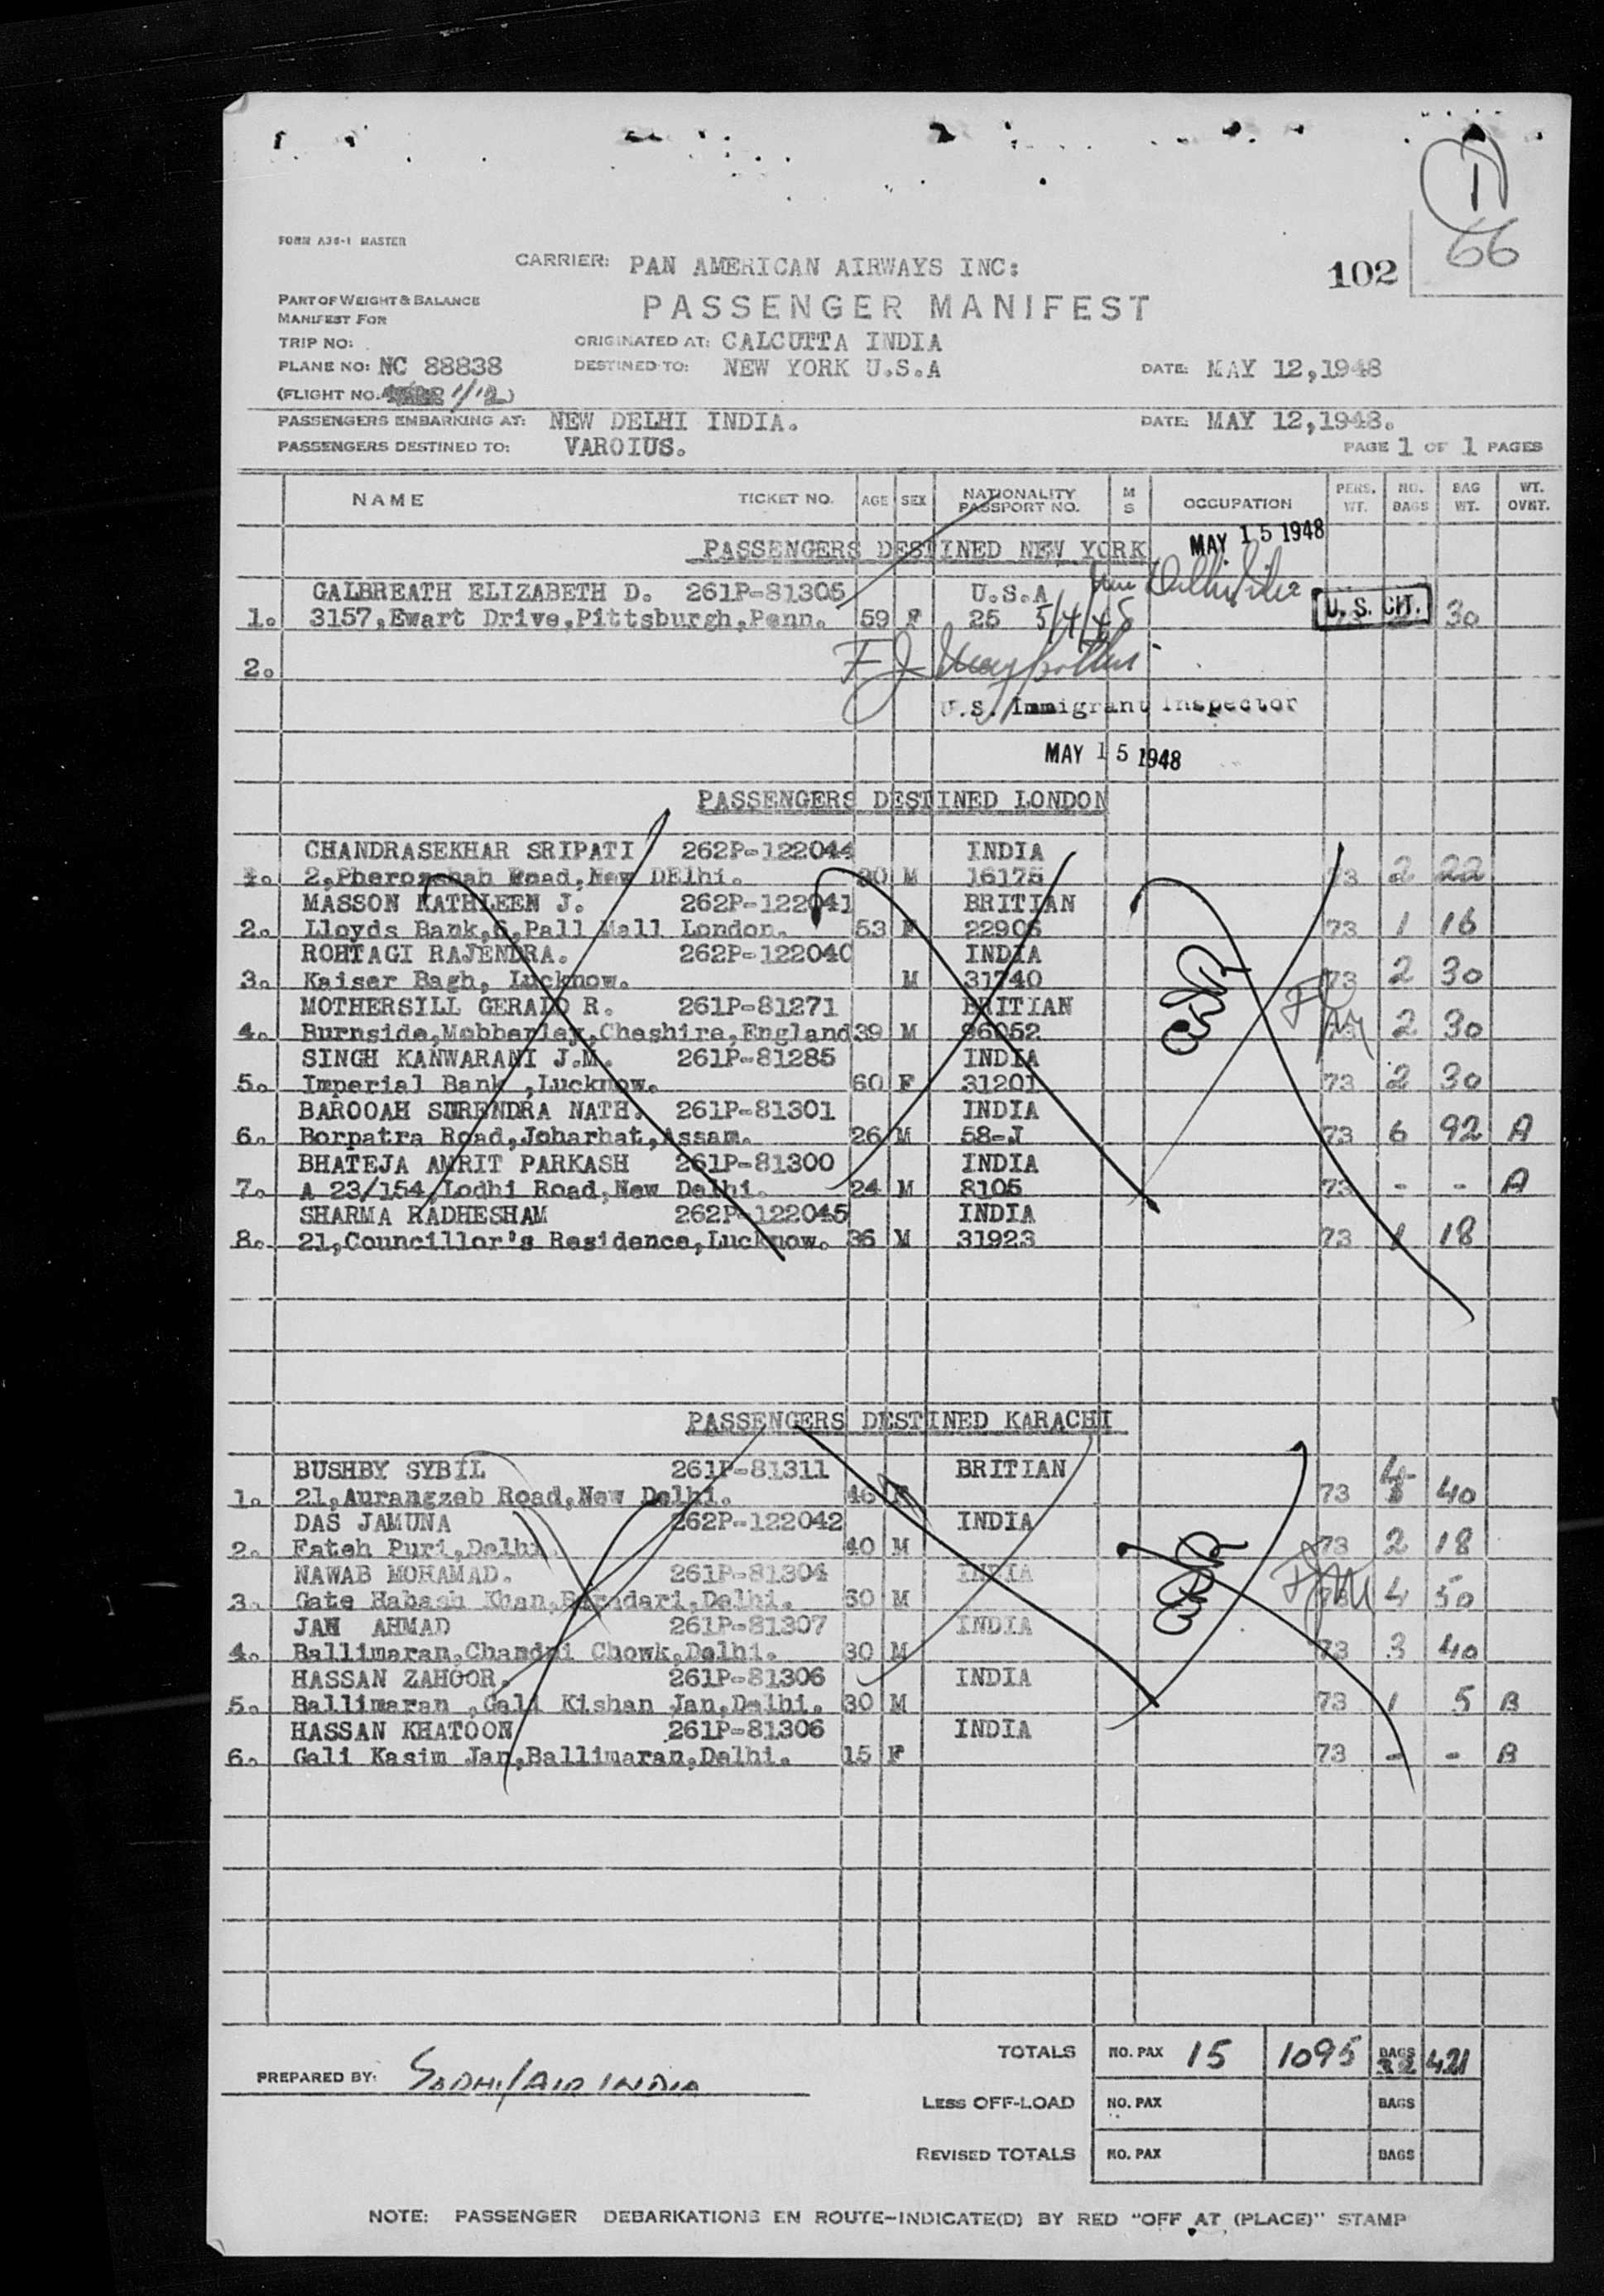 1
66
FORM A36-1 MASTER
CARRIER: PAN AMERICAN AIRWAYS INC:
102
PART OF WEIGHT & BALANCE
MANIFEST FOR
PASSENGER MANIFEST
TRIP NO:
ORIGINATED AT: CALCUTTA INDIA
PLANE NO: NC 88838
DESTINED TO: NEW YORK U.S.A
DATE: MAY 12,1948
(FLIGHT NO. 1/12)
PASSENGERS EMBARKING AT: NEW DELHI INDIA.
DATE: MAY 12,1948.
PASSENGERS DESTINED TO: VAROIUS.
PAGE 1 OF 1 PAGES
NAME TICKET NO. AGE SEX NATIONALITY PASSPORT NO. M S OCCUPATION PERS. WT. NO. BAGS BAG WT. WT. OVNT.
PASSENGERS DESTINED NEW YORK
MAY 15 1948
GALBREATH ELIZABETH D. 261P-81305 U.S.A
1. 3157,Ewart Drive,Pittsburgh,Penn. 59 F 25 5/4/45 U.S. CIT. 30
2.
U.S. Immigrant Inspector
MAY 15 1948
PASSENGERS DESTINED LONDON
CHANDRASEKHAR SRIPATI 262P-122044 INDIA
1. 2,Pherozshah Road,New DElhi. 30 M 16175 73 2 22
MASSON KATHLEEN J. 262P-122041 BRITIAN
2. Lloyds Bank,6,Pall Mall London. 53 F 22906 73 1 16
ROHTAGI RAJENDRA. 262P-122040 INDIA
3. Kaiser Bagh, Lucknow. M 31740 73 2 30
MOTHERSILL GERALD R. 261P-81271 BRITIAN
4. Burnside,Mobberley,Cheshire,England 39 M 96052 73 2 30
SINGH KANWARANI J.M. 261P-81285 INDIA
5. Imperial Bank ,Lucknow. 60 F 31201 73 2 30
BAROOAH SURENDRA NATH. 261P-81301 INDIA
6. Borpatra Road,Joharhat,Assam. 26 M 58-J 73 6 92 A
BHATEJA AMRIT PARKASH 261P-81300 INDIA
7. A 23/154,Lodhi Road,New Delhi. 24 M 8105 73 - - A
SHARMA RADHESHAM 262P-122045 INDIA
8. 21,Councillor's Residence,Lucknow. 36 M 31923 73 1 18
PASSENGERS DESTINED KARACHI
BUSHBY SYBIL 261P-81311 BRITIAN
1. 21,Aurangzeb Road,New Delhi. 46 F 73 4 40
DAS JAMUNA 262P-122042 INDIA
2. Fateh Puri,Delhi. 40 M 73 2 18
NAWAB MOHAMAD. 261P-81304 INDIA
3. Gate Habash Khan,Baradari,Delhi. 30 M 73 4 50
JAN AHMAD 261P-81307 INDIA
4. Ballimaran,Chandni Chowk,Delhi. 30 M 73 3 40
HASSAN ZAHOOR. 261P-81306 INDIA
5. Ballimaran ,Gali Kishan Jan,Delhi. 30 M 73 1 5 B
HASSAN KHATOON 261P-81306 INDIA
6. Gali Kasim Jan,Ballimaran,Delhi. 15 F 73 - - B
TOTALS NO. PAX 15 1095 BAGS 32 421
PREPARED BY: SODHI/AIR INDIA
LESS OFF-LOAD NO. PAX BAGS
REVISED TOTALS NO. PAX BAGS
NOTE: PASSENGER DEBARKATIONS EN ROUTE-INDICATE(D) BY RED "OFF AT (PLACE)" STAMP